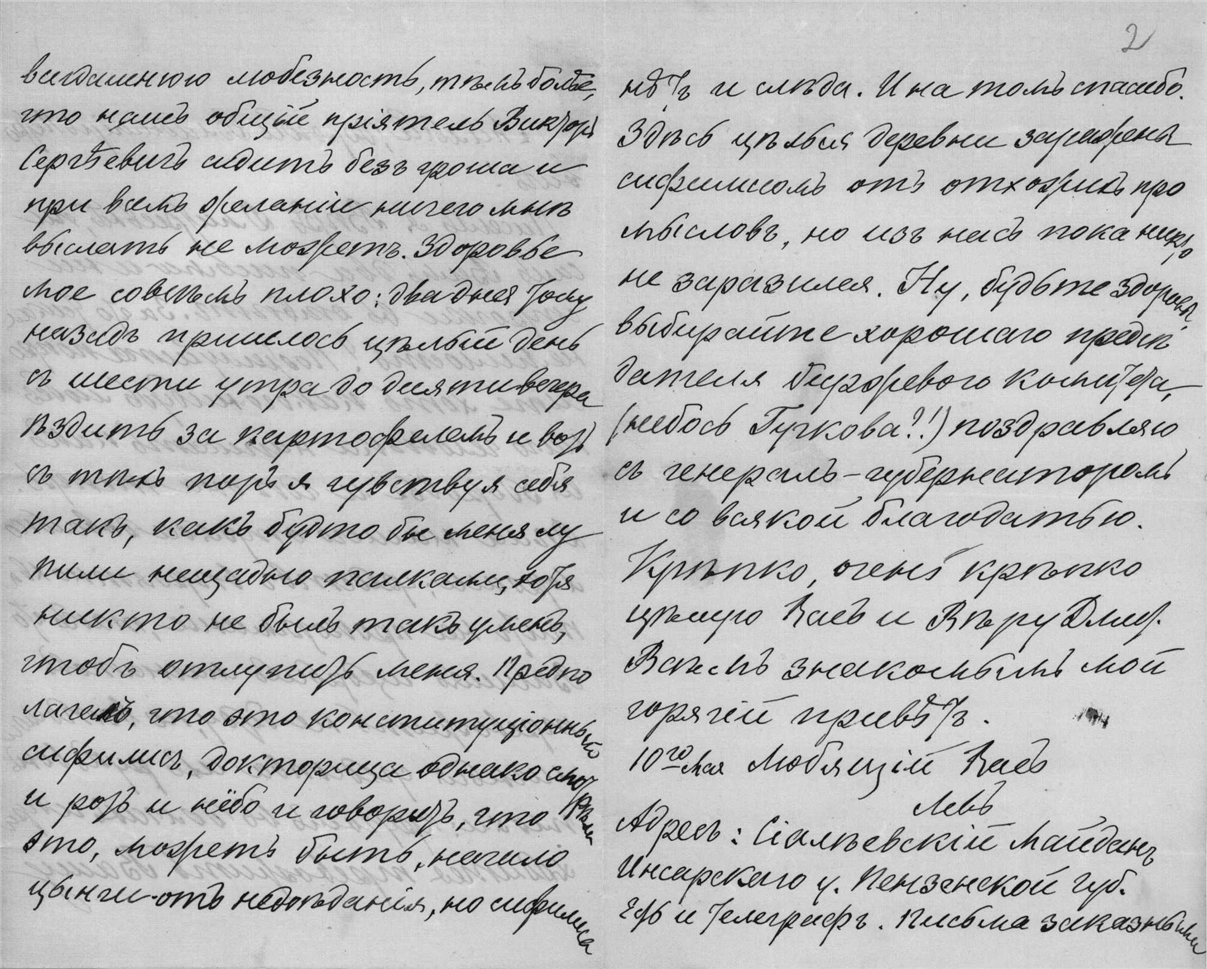 2
вагдашнюю любезность, тѣмъ болѣе,
что нашъ общій пріятель Викторъ
Сергѣевичъ сидитъ безъ гроша и
при всемъ желаніи ничего мнѣ
выслать не можетъ. Здоровье
мое совсѣмъ плохо: два дня тому
назадъ пришлось цѣлый день
съ шести утра до десяти вечера
ѣздить за картофелемъ и вотъ
съ тѣхъ поръ я чувствую себя
такъ, какъ будто бы меня лу
пили нещадно палками, хотя
никто не былъ такъ уменъ,
чтобъ отлупить меня. Предпо
лагаю, что это конституціонный
сифилисъ, докторица однако смотрѣла
и ротъ и нёбо и говоритъ, что
это, можетъ быть, начало
цынги отъ недоѣданія, но сифилиса
нѣтъ и слѣда. И на томъ спасибо.
Здѣсь цѣлыя деревни заражены
сифилисомъ отъ отхожихъ про
мысловъ, но изъ насъ пока никто
не заразился. Ну, будьте здоровы,
выбирайте хорошаго предсѣ
дателя биржевого комитета,
(небось Гучкова?!) поздравляю
съ генералъ-губернаторомъ
и со всякой благодатью.
Крѣпко, очень крѣпко
цѣлую Васъ и Вѣру Дмит.
Всѣмъ знакомымъ мой
горячій привѣтъ.
10го Мая Любящій Васъ
Левъ
Адресъ: Сіалѣевскій Майданъ
Инсарскаго у. Пензенской губ.
и Телеграфъ. Письма заказными